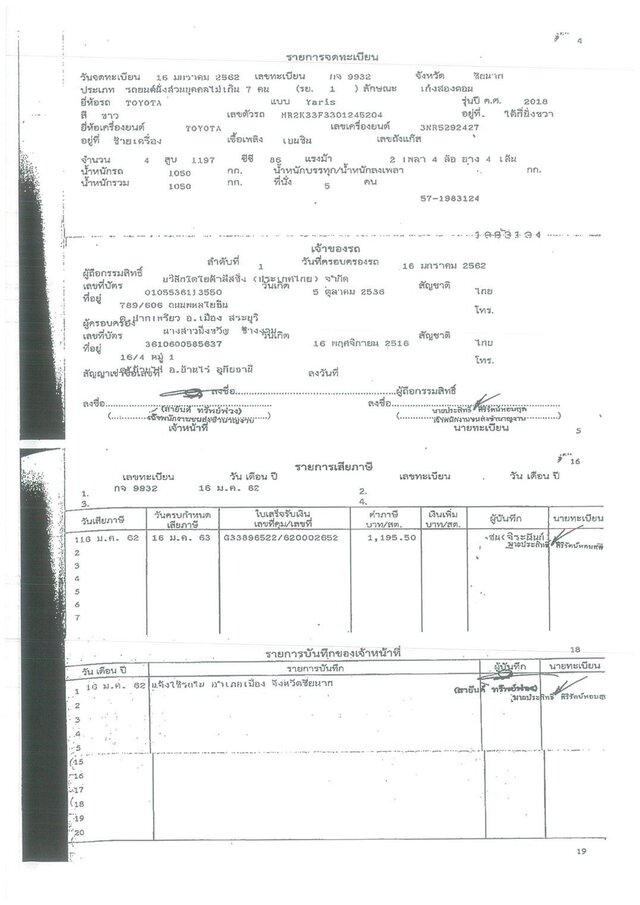 4
รายการจดทะเบียน
วันจดทะเบียน 16 มกราคม 2562 เลขทะเบียน กจ 9932 จังหวัด ชัยนาท
ประเภท รถยนต์นั่งส่วนบุคคลไม่เกิน 7 คน (รย. 1 ) ลักษณะ เก๋งสองตอน
ยี่ห้อรถ TOYOTA แบบ Yaris รุ่นปี ค.ศ. 2018
สี ขาว เลขตัวรถ MR2K33F3301245204 อยู่ที่. ใต้ที่นั่งขวา
ยี่ห้อเครื่องยนต์ TOYOTA เลขเครื่องยนต์ 3NR5292427
อยู่ที่ ซ้ายเครื่อง เชื้อเพลิง เบนซิน เลขถังแก๊ส
จำนวน 4 สูบ 1197 ซีซี 86 แรงม้า 2 เพลา 4 ล้อ ยาง 4 เส้น
น้ำหนักรถ 1050 กก. น้ำหนักบรรทุก/น้ำหนักลงเพลา กก.
น้ำหนักรวม 1050 กก. ที่นั่ง 5 คน
57-1983124
เจ้าของรถ
ลำดับที่ 1 วันที่ครอบครองรถ 16 มกราคม 2562
ผู้ถือกรรมสิทธิ์ บริษัทโตโยต้าลีสซิ่ง (ประเทศไทย) จำกัด
เลขที่บัตร 0105536113550 วันเกิด 5 ตุลาคม 2536 สัญชาติ ไทย
ที่อยู่ 789/606 ถนนพหลโยธิน โทร.
ต.ปากเพรียว อ.เมือง สระบุรี
ผู้ครอบครอง นางสาวมิ่งขวัญ ช้างงาม
เลขที่บัตร 3610600585637 วันเกิด 16 พฤศจิกายน 2516 สัญชาติ ไทย
ที่อยู่ 16/4 หมู่ 1 โทร.
ต.บ้านไร่ อ.บ้านไร่ อุทัยธานี
สัญญาเช่าซื้อเลขที่ ลงวันที่
ลงชื่อ ผู้ถือกรรมสิทธิ์
ลงชื่อ ลงชื่อ
(สายันต์ ทรัพย์พ่วง) นายประสิทธิ์ ศิริรัตน์หอมกุล
เจ้าพนักงานขนส่งชำนาญงาน เจ้าพนักงานขนส่งชำนาญงาน
เจ้าหน้าที่ นายทะเบียน
5
16
รายการเสียภาษี
เลขทะเบียน วัน เดือน ปี เลขทะเบียน วัน เดือน ปี
1. กจ 9932 16 ม.ค. 62 2.
3. 4.
วันเสียภาษี วันครบกำหนดเสียภาษี ใบเสร็จรับเงิน เลขที่คุม/เลขที่ ค่าภาษี บาท/สต. เงินเพิ่ม บาท/สต. ผู้บันทึก นายทะเบียน
1 16 ม.ค. 62 16 ม.ค. 63 G33896522/620002652 1,195.50
นายประสิทธิ์ ศิริรัตน์หอมกุล
2
3
4
5
6
7
รายการบันทึกของเจ้าหน้าที่ 18
วัน เดือน ปี รายการบันทึก ผู้บันทึก นายทะเบียน
1 16 ม.ค. 62 แจ้งใช้รถใน อำเภอเมือง จังหวัดชัยนาท (สายันต์ ทรัพย์พ่วง)
นายประสิทธิ์ ศิริรัตน์หอมกุล
2
3
4
5
15
16
17
18
19
20
19